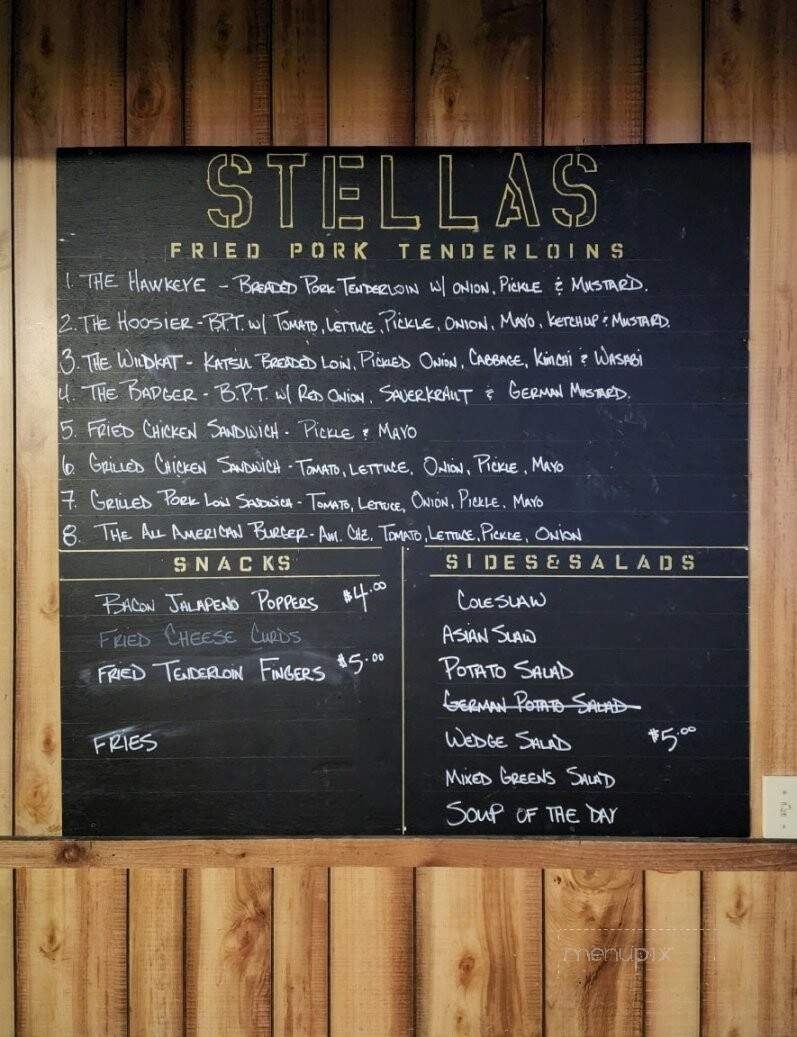 STELLAS
FRIED PORK TENDERLOINS
1. THE HAWKEYE - BREADED PORK TENDERLOIN W/ ONION, PICKLE & MUSTARD.
2. THE HOOSIER - BPT. W/ TOMATO, LETTUCE, PICKLE, ONION, MAYO, KETCHUP & MUSTARD.
3. THE WILDKAT - KATSU BREADED LOIN, PICKLED ONION, CABBAGE, KIMCHI & WASABI
4. THE BADGER - B.P.T. W/ RED ONION, SAUERKRAUT & GERMAN MUSTARD.
5. FRIED CHICKEN SANDWICH - PICKLE & MAYO
6. GRILLED CHICKEN SANDWICH - TOMATO, LETTUCE, ONION, PICKLE, MAYO
7. GRILLED PORK LOIN SANDWICH - TOMATO, LETTUCE, ONION, PICKLE, MAYO
8. THE ALL AMERICAN BURGER - AM. CHZ. TOMATO, LETTUCE, PICKLE, ONION
SNACKS
BACON JALAPENO POPPERS $4.00
FRIED CHEESE CURDS
FRIED TENDERLOIN FINGERS $5.00
FRIES
SIDES & SALADS
COLESLAW
ASIAN SLAW
POTATO SALAD
GERMAN POTATO SALAD
WEDGE SALAD $5.00
MIXED GREENS SALAD
SOUP OF THE DAY
menupix